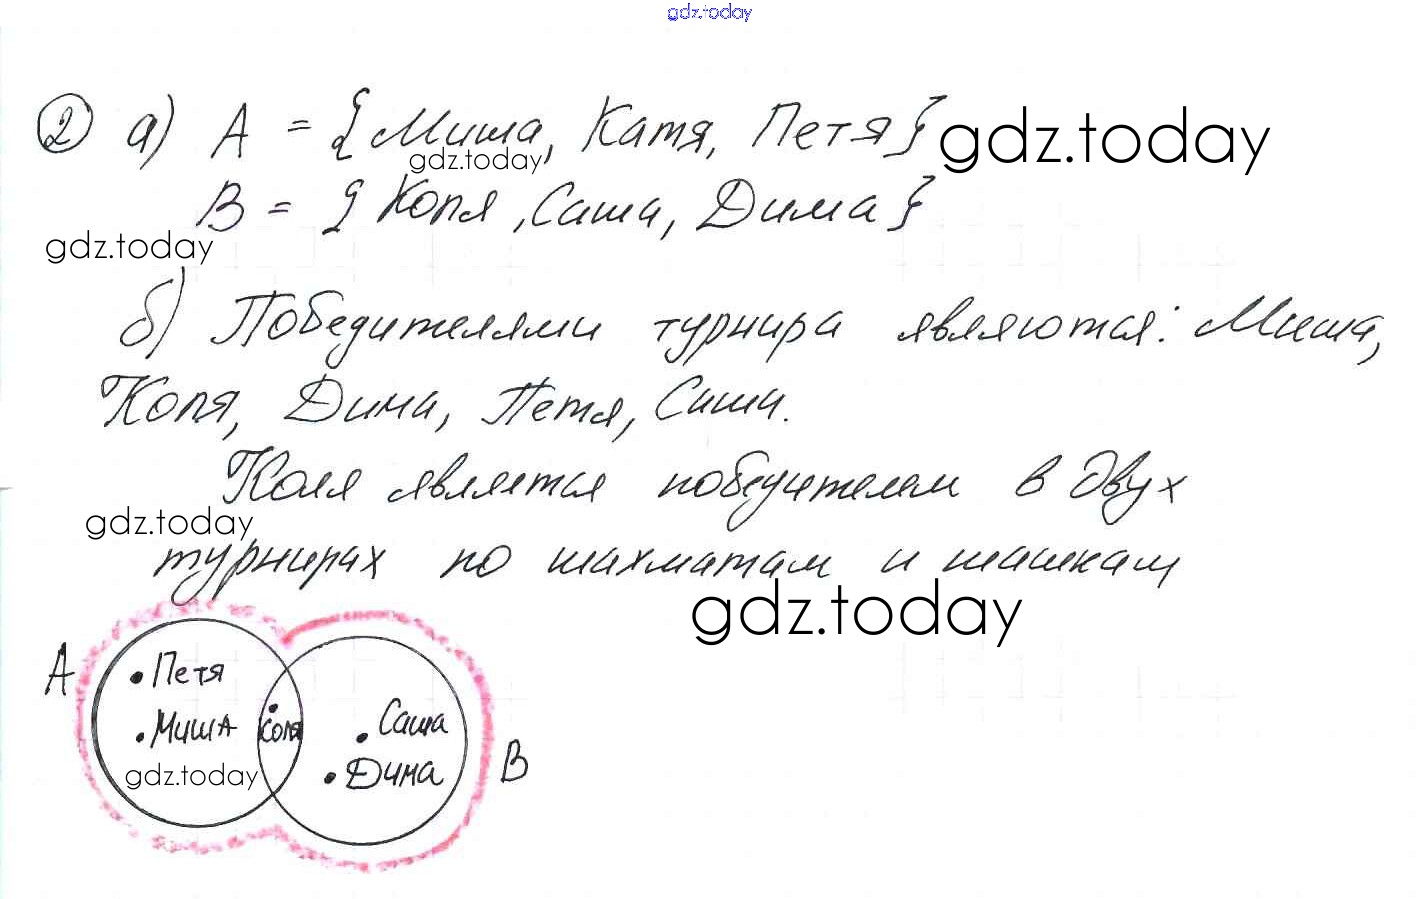 gdz.today
2 а) A = {Миша, Катя, Петя} gdz.today
gdz.today
B = {Коля, Саша, Дима}
gdz.today
б) Победителями турнира являются: Миша,
Коля, Дима, Петя, Саша.
Коля является победителем в двух
gdz.today
турнирах по шахматам и шашкам
gdz.today
A
• Петя
• Миша
Коля
• Саша
• Дима
B
gdz.today